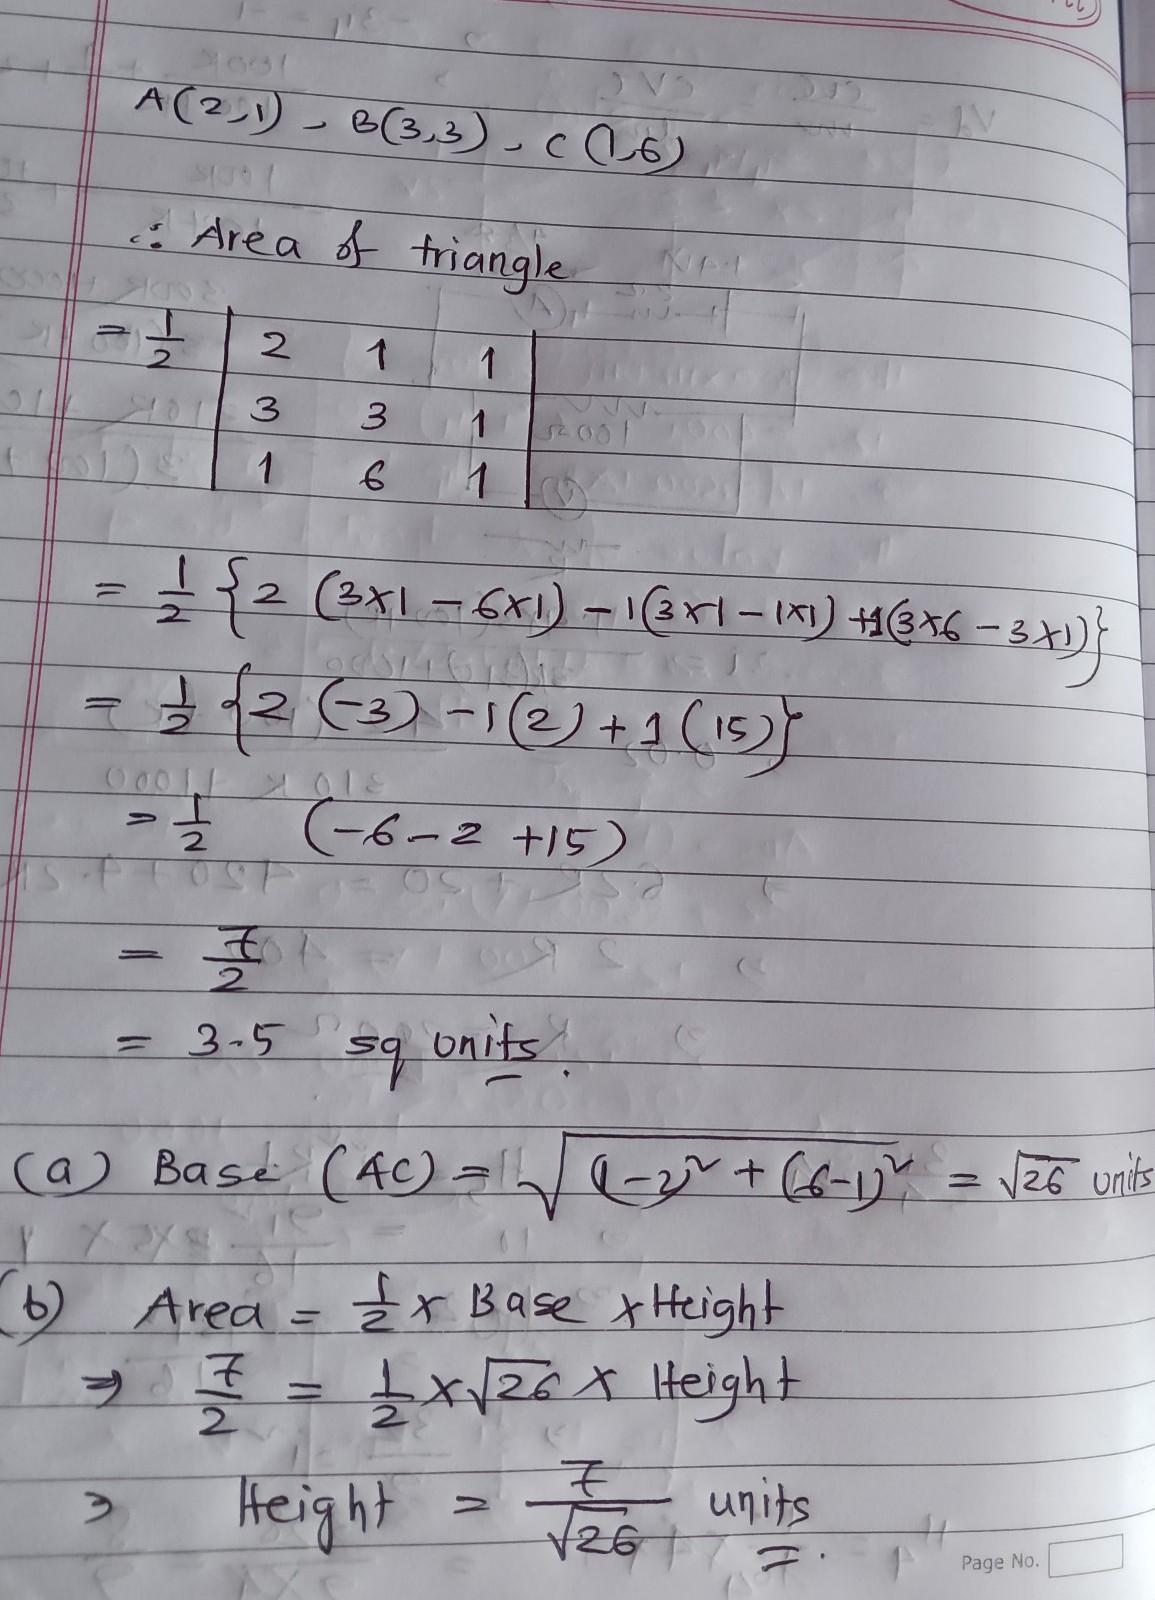 A(2,1) , B(3,3) , C(1,6)
∴ Area of triangle
= 1/2 | 2 1 1 |
| 3 3 1 |
| 1 6 1 |
= 1/2 {2 (3×1 - 6×1) - 1(3×1 - 1×1) + 1(3×6 - 3×1)}
= 1/2 {2 (-3) - 1(2) + 1(15)}
= 1/2 (-6 - 2 + 15)
= 7/2
= 3.5 sq units.
(a) Base (AC) = √((1-2)² + (6-1)²) = √26 units
(b) Area = 1/2 × Base × Height
⇒ 7/2 = 1/2 × √26 × Height
⇒ Height = 7/√26 units.
Page No.